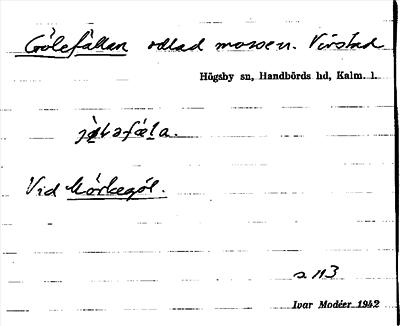 Gölefällan odlad mossen. Virstad
Högsby sn, Handbörds hd, Kalm. l.
Vid Mörkegöl.
s 113
Ivar Modéer 1942